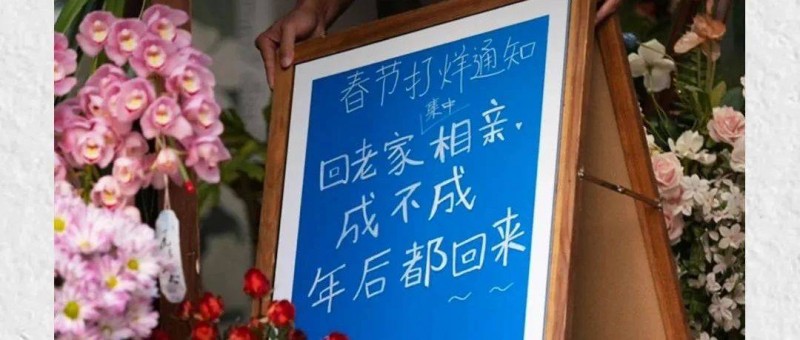 春节打烊通知
集中
回老家相亲.
成不成
年后都回来
～ ～